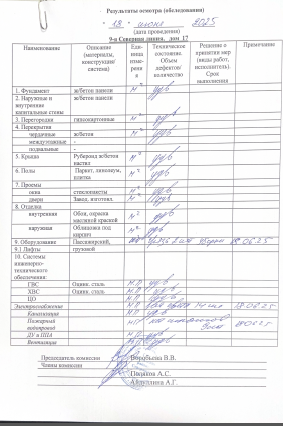 Результаты осмотра (обследования)
« 18 » июня 2025
(дата проведения)
9-я Северная линия, дом 17
Наименование Описание (материалы, конструкция/система) Единица измерения Техническое состояние. Объем дефектов/количество Решение о принятии мер (виды работ, исполнитель). Срок выполнения Примечание
1. Фундамент ж/бетон панели м² удов
2. Наружные и внутренние капитальные стены ж/бетон панели м²
3. Перегородки гипсокартонные м² удов
4. Перекрытия
чердачные ж/бетон м² удов
междуэтажные -
подвальные -
5. Крыша Рубероид ж/бетон настил м² удов
6. Полы Паркет, линолеум, плитка м² удов
7. Проемы
окна стеклопакеты м² удов
двери Завод. изготовл. м² удов
8. Отделка
внутренняя Обои, окраска масляной краской м² удов
наружная Облицовка под кирпич м² удов
9. Оборудование Пассажирский, 18.06.25
9.1 Лифты грузовой
10. Системы инженерно-технического обеспечения:
ГВС Оцинк. сталь м.п удов
ХВС Оцинк. сталь м.п удов
ЦО м.п удов
Электроснабжение м.п 18.06.25
Канализация м.п удов
Пожарный водопровод м.п 18.06.25
ДУ и ППА м.п удов
Вентиляция м.п удов
Председатель комиссии Воробьева В.В.
Члены комиссии
А.С.
А.Г.